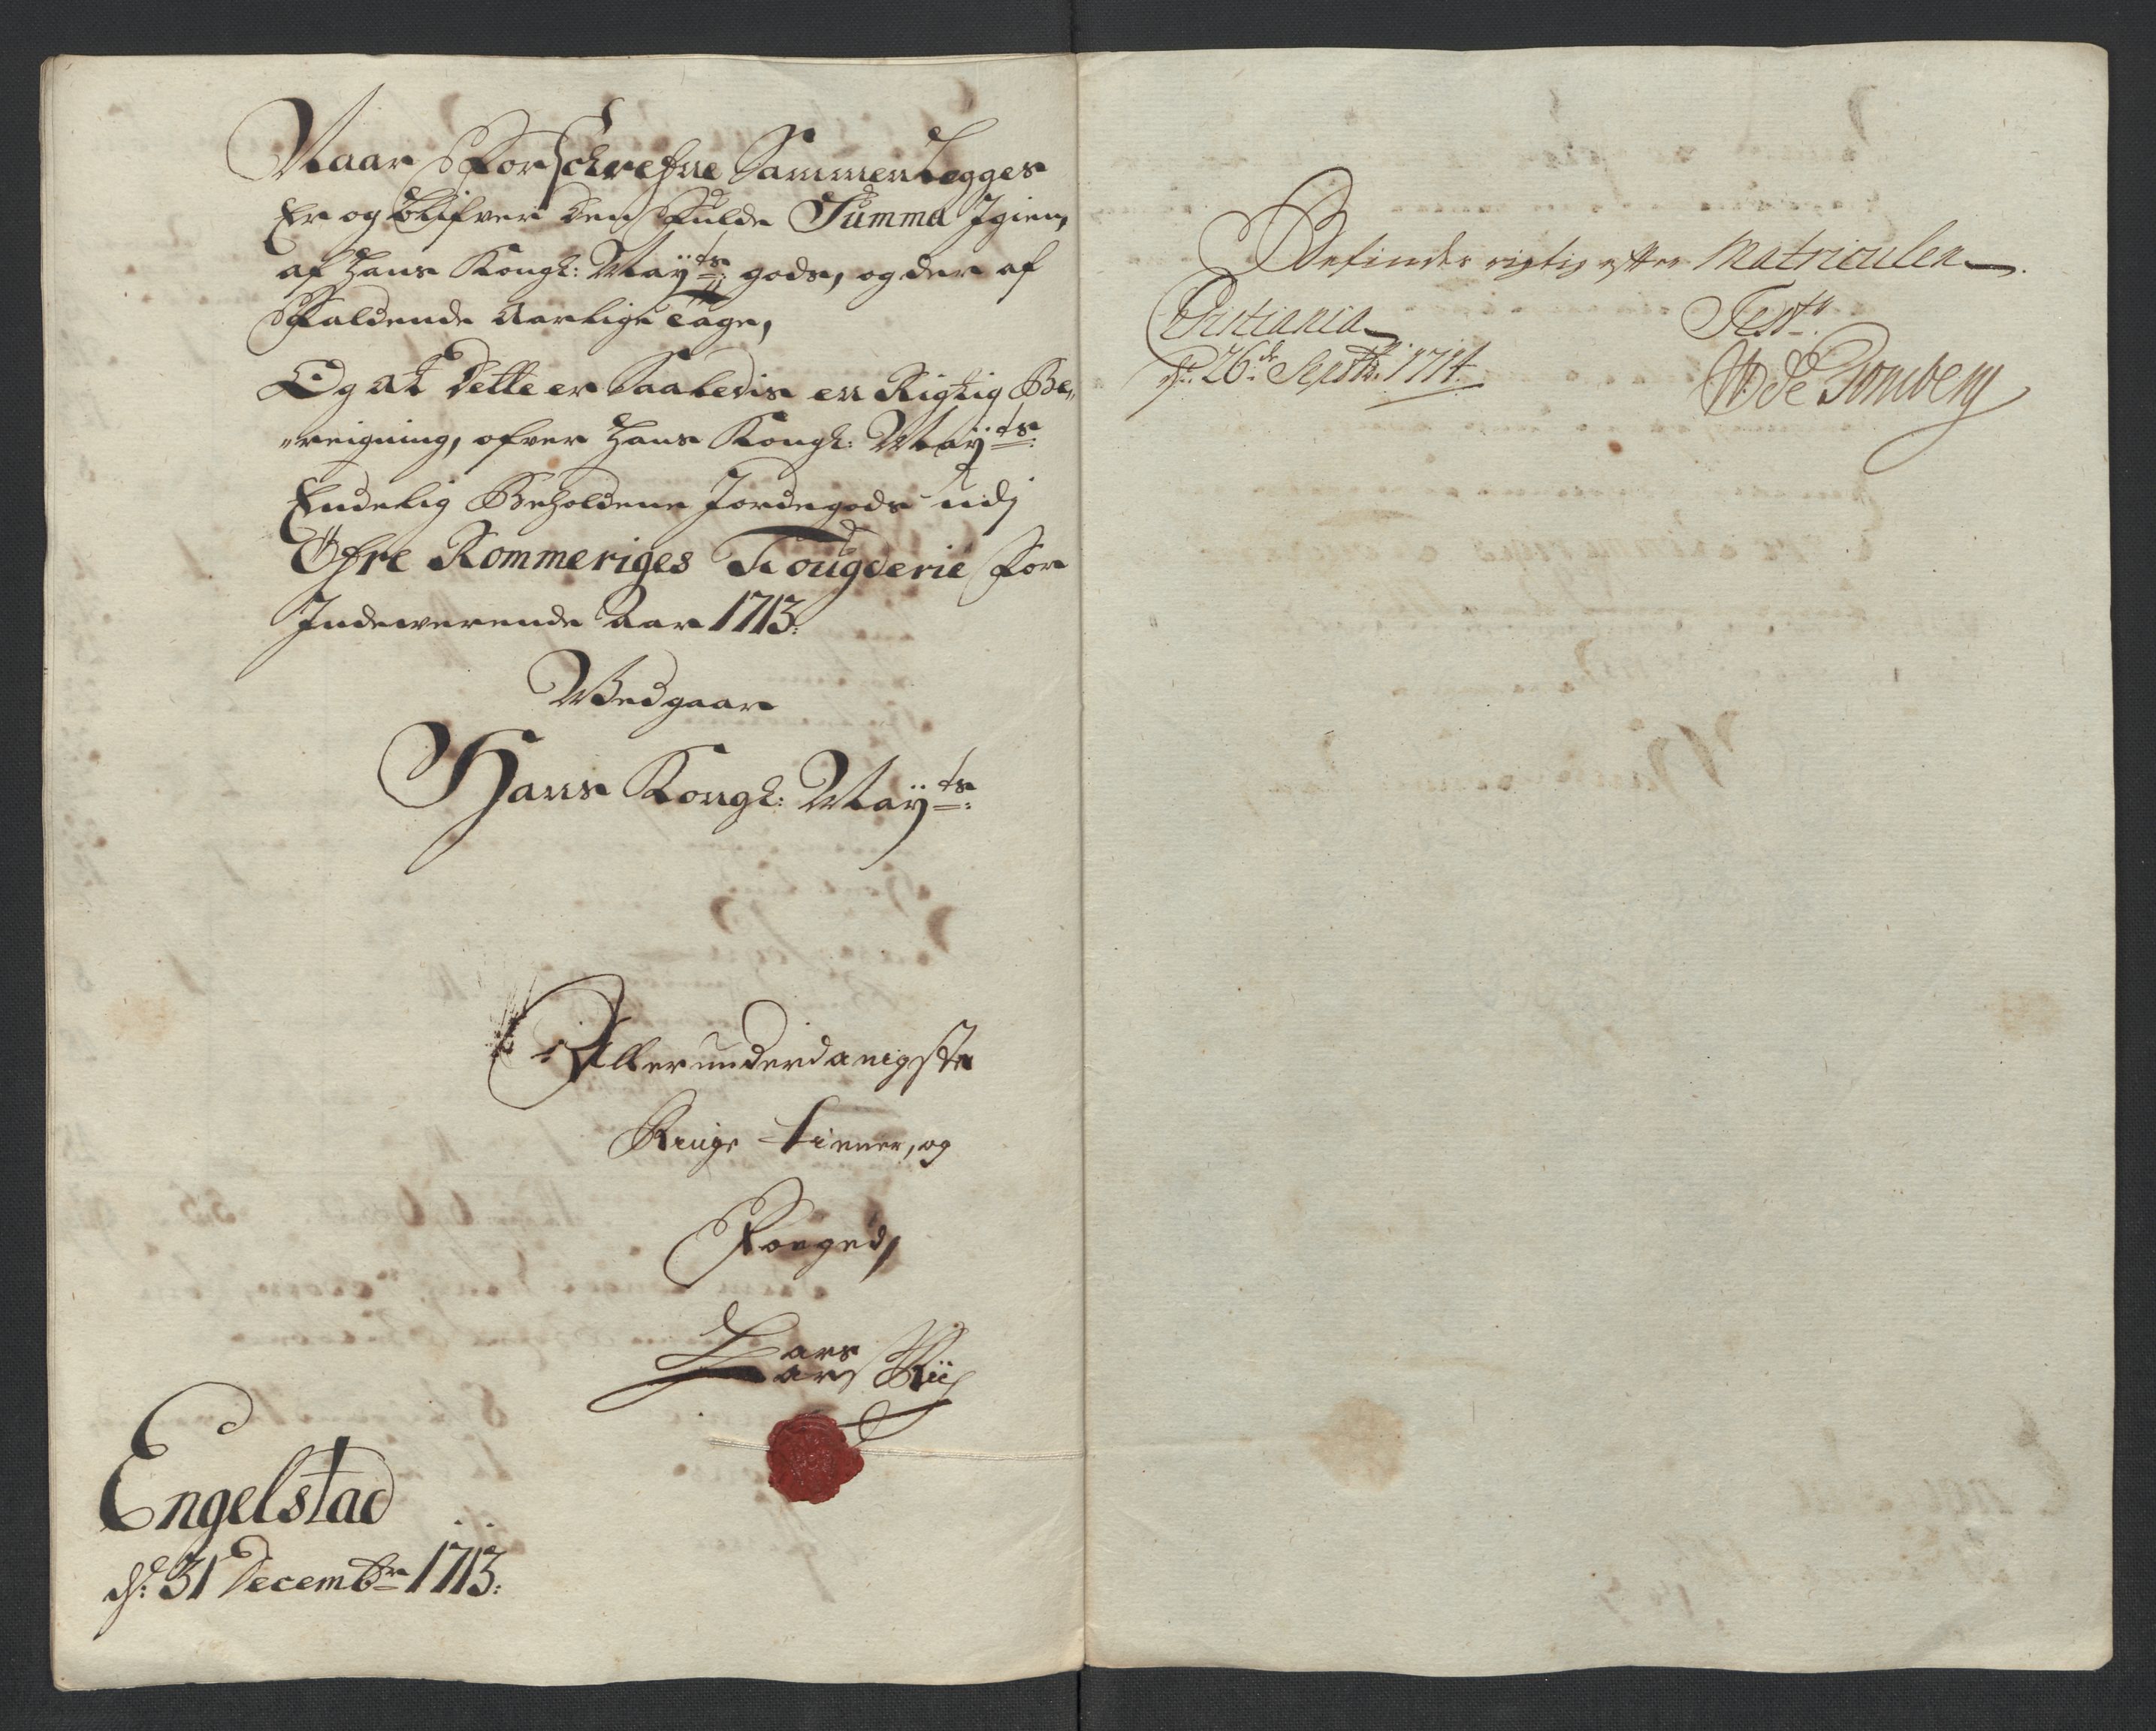 Naar Forschrefne Sammenlegges
Er og blifver den Fulde Summa Igien,
af Hans Kongl: Maÿts: gods, og der af
Faldende Aarlige Tage,
Og at Dette er Saaledis en Rigtig Be,,
,,reigning, ofver Hans Kongl: Maÿts:
Endelig Beholdene Jordegods udj
Öfre Rommeriges Fougderie for
Indewerende Aar 1713:
Wedgaar
Hans Kongl: Maÿts:
Allerunderdanigste
Ringe tienner, og
Fouged,
Lars
Lars Riis
Engelstad
dn: 31 Decembr 1713:
Befindes rigtig efter Matriculen
Christiania
dn: 26de Septbr: 1714.
Test: